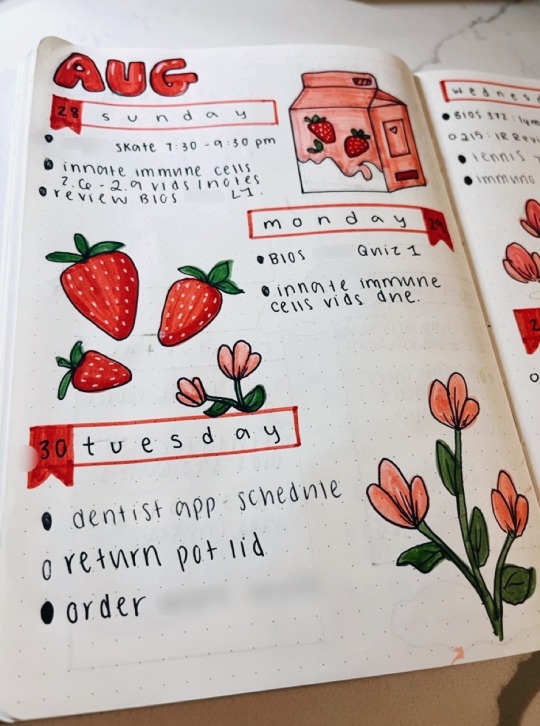 AUG
28 sunday
skate 7:30-9:30 pm
innate immune cells
2.6-2.9 vids/notes
review BIOS L1.
monday 29
BIOS Quiz 1
innate immune
cells vids dne.
30 tuesday
dentist app-schedule
return pot lid
order
wednesd
BIOS 372:
0215:
tennis
immuno
2